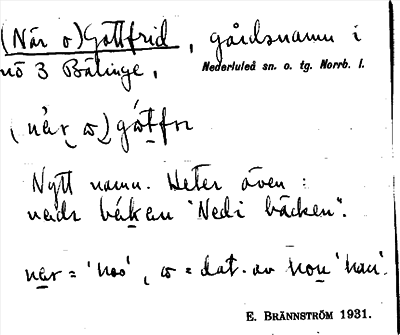 (När o) Gottfrid, gårdsnamn i
nö 3 Bälinge,
Nederluleå sn. o. tg. Norrb. l.
Nytt namn. Heter även:
"Nedi bäcken".
nær = 'hos', ω = dat. av hon 'han'.
E. BRÄNNSTRÖM 1931.